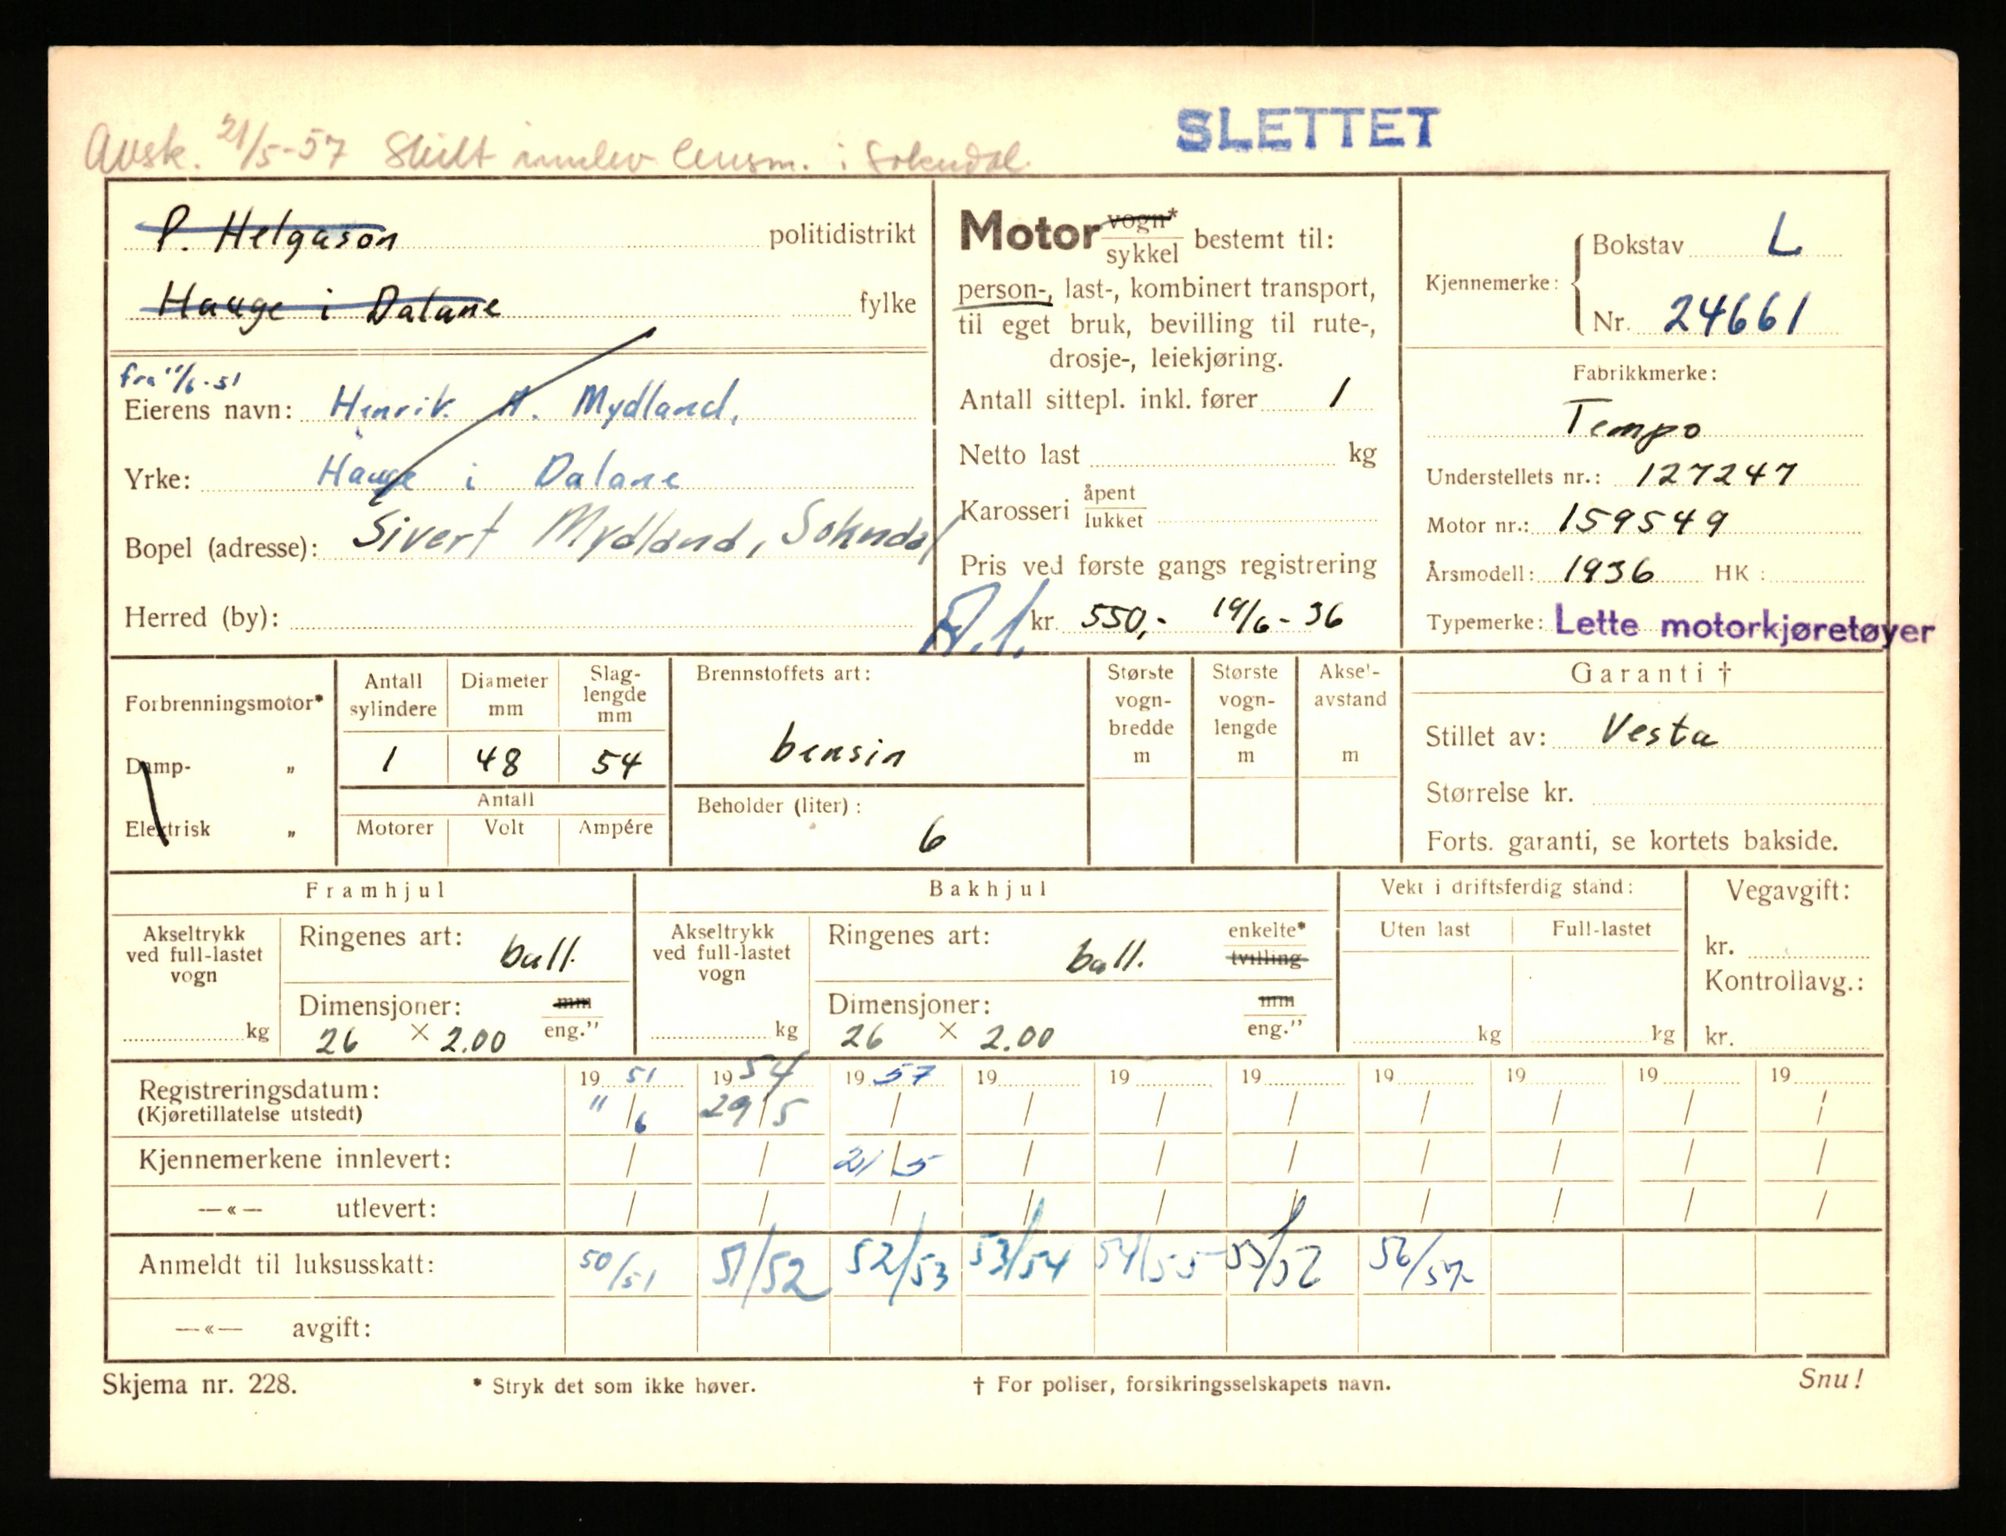 SLETTET
Avsk. 21/5-57 Skilt innlev lensm. i Sokndal
P. Helgason politidistrikt
Hauge i Dalane fylke
fra 11/6-51
Eierens navn: Henrik A. Mydland,
Yrke: Hauge i Dalane
Bopel (adresse): Sivert Mydland, Sokndal
Herred (by):
Motor vogn* sykkel bestemt til:
person-, last-, kombinert transport,
til eget bruk, bevilling til rute-,
drosje-, leiekjøring.
Antall sittepl. inkl. fører 1
Netto last kg
Karosseri åpent lukket
Pris ved første gangs registrering
kr. 550,- 19/6-36
Kjennemerke: Bokstav L
Nr. 24661
Fabrikkmerke:
Tempo
Understellets nr.: 127247
Motor nr.: 159549
Årsmodell: 1936 HK:
Typemerke: Lette motorkjøretøyer
Forbrenningsmotor*
Damp- „
Elektrisk „
Antall sylindere Diameter mm Slag-lengde mm
1 48 54
Antall
Motorer Volt Ampére
Brennstoffets art:
bensin
Beholder (liter):
6
Største vogn-bredde m
Største vogn-lengde m
Aksel-avstand m
Garanti †
Stillet av: Vesta
Størrelse kr.
Forts. garanti, se kortets bakside.
Framhjul
Akseltrykk ved full-lastet vogn
kg
Ringenes art: ball.
Dimensjoner: mm eng."
26 × 2.00
Bakhjul
Akseltrykk ved full-lastet vogn
kg
Ringenes art: ball. enkelte* tvilling
Dimensjoner: mm eng."
26 × 2.00
Vekt i driftsferdig stand:
Uten last Full-lastet
kg kg
Vegavgift:
kr.
Kontrollavg.:
kr.
Registreringsdatum: 19 51 19 54 19 57 19 19 19 19 19 19 19
(Kjøretillatelse utstedt) 11/6 29/5 / / / / / / / /
Kjennemerkene innlevert: / / 21/5 / / / / / / /
—«— utlevert: / / / / / / / / / /
Anmeldt til luksusskatt: 50/51 51/52 52/53 53/54 54/55 56/57
—«— avgift:
Skjema nr. 228. * Stryk det som ikke høver. † For poliser, forsikringsselskapets navn. Snu!